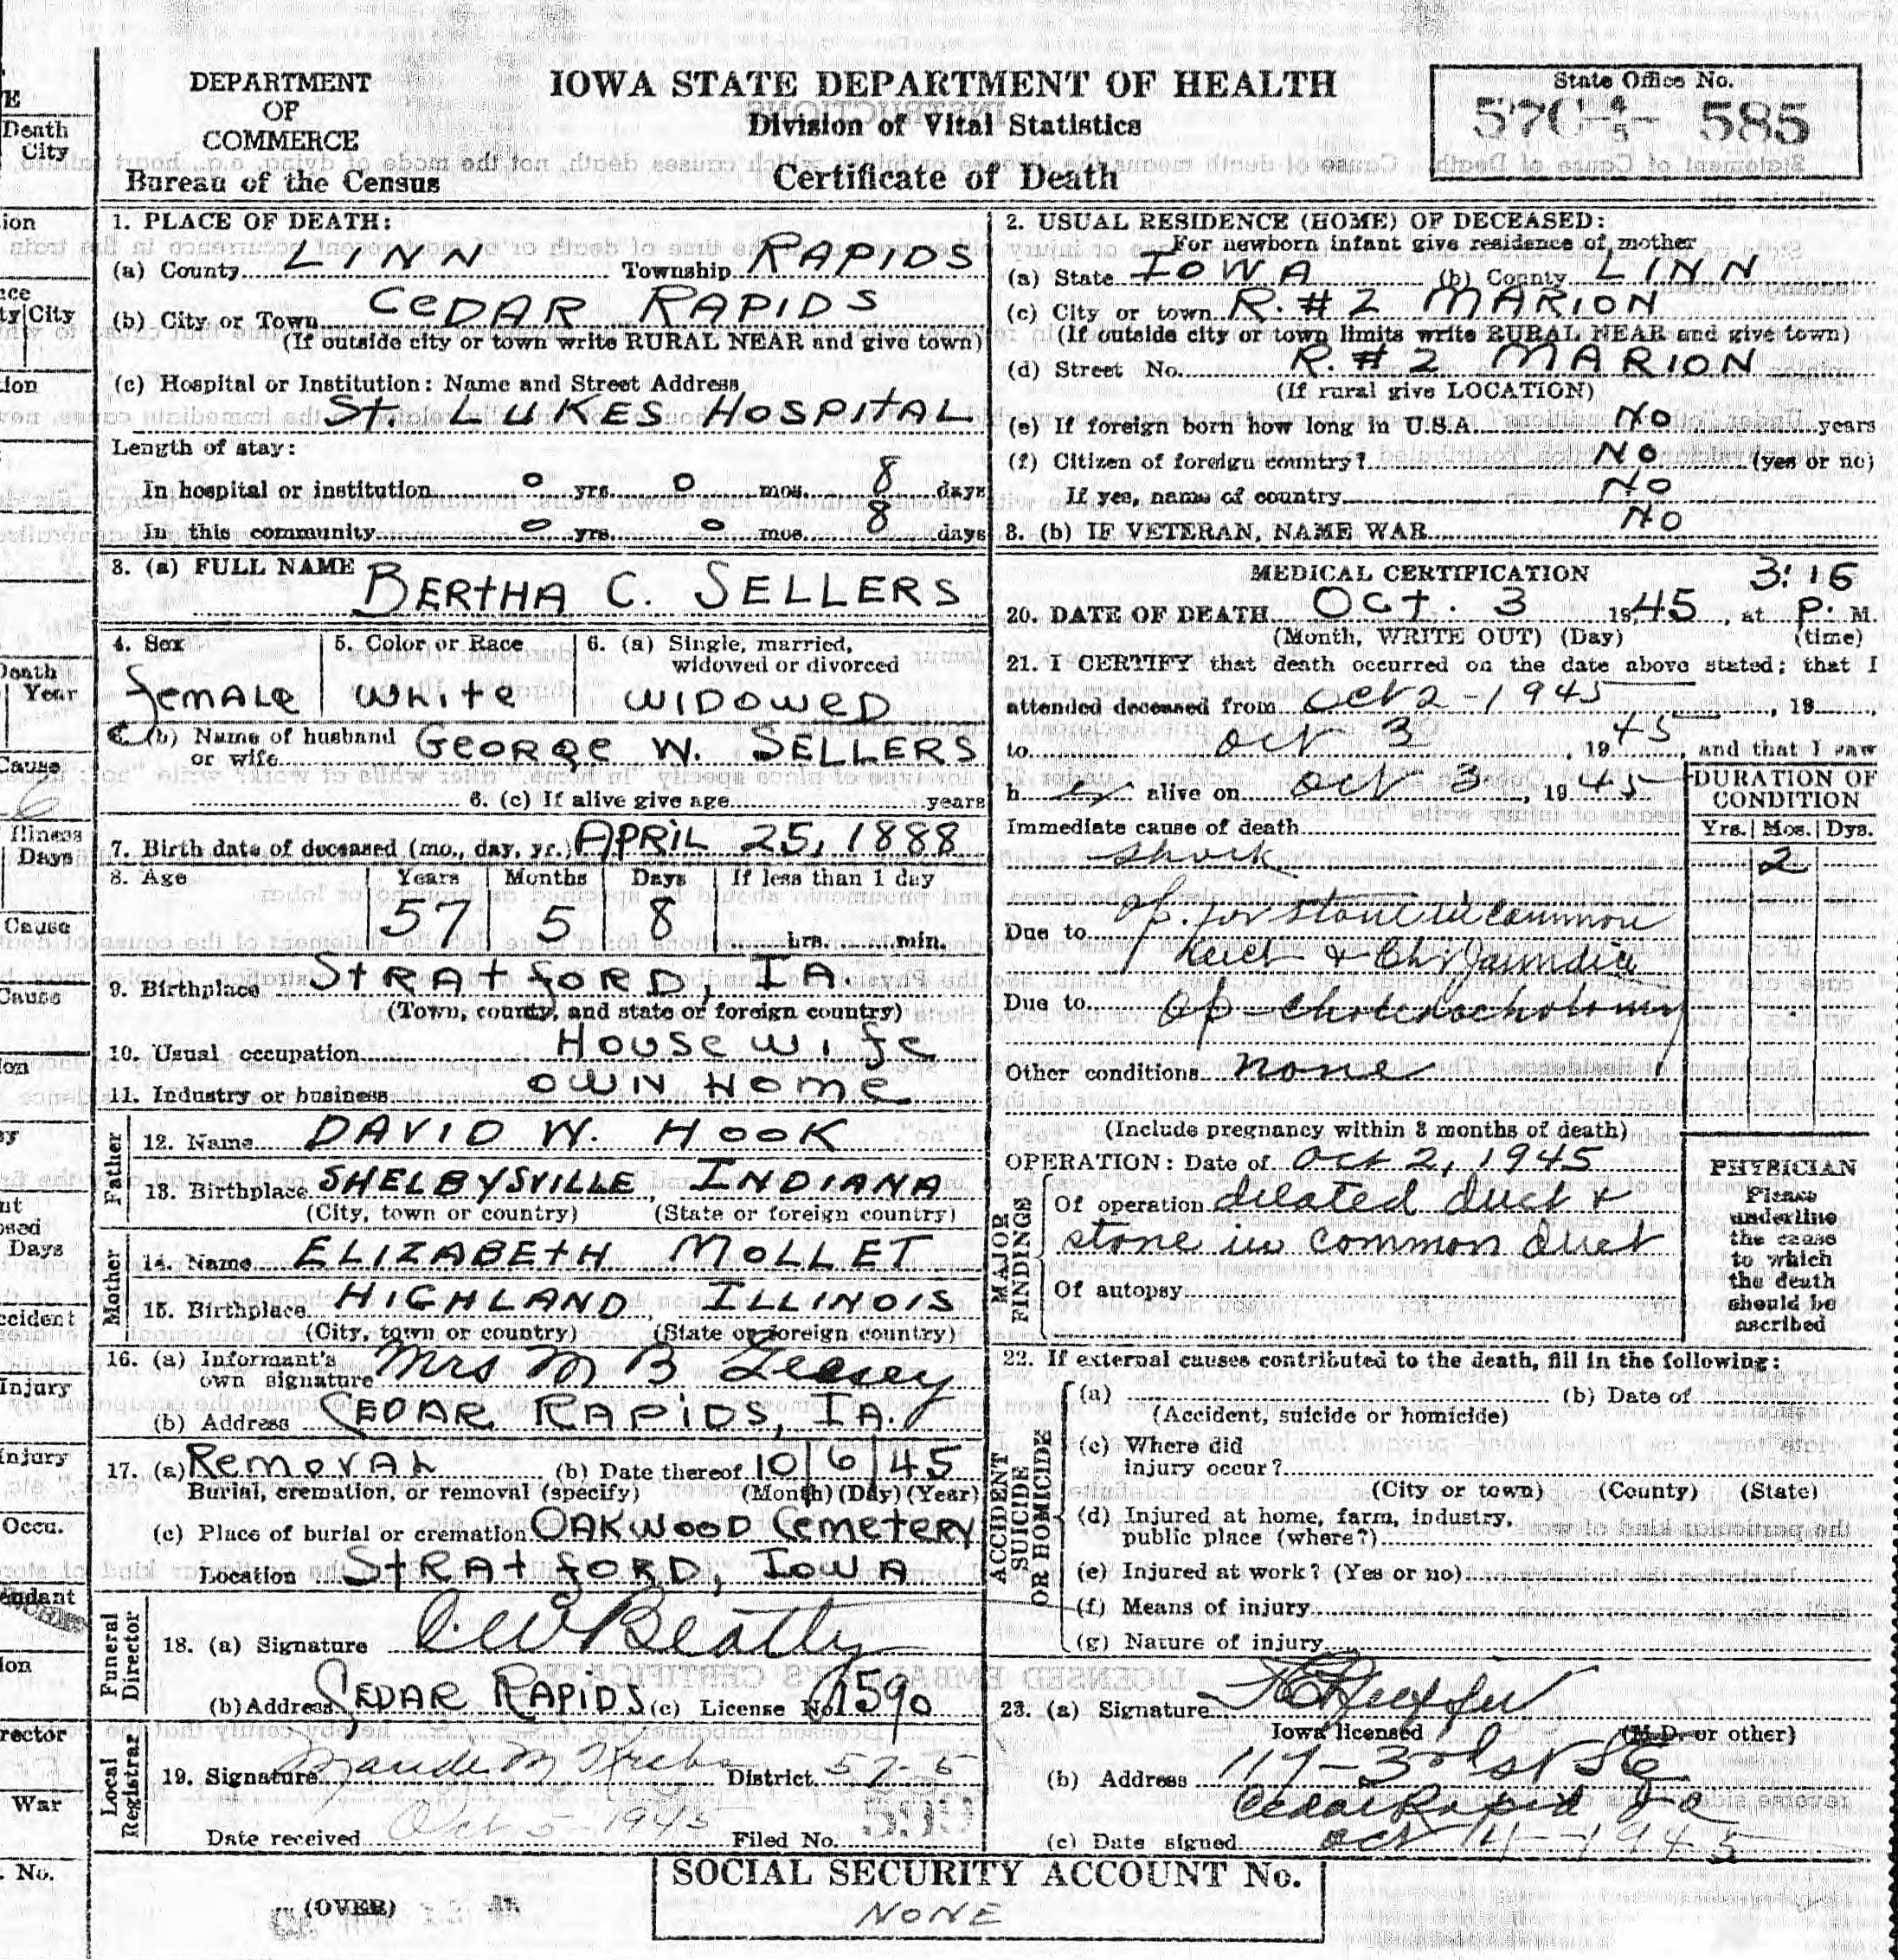 DEPARTMENT
OF
COMMERCE
Bureau of the Census
IOWA STATE DEPARTMENT OF HEALTH
Division of Vital Statistics
Certificate of Death
State Office No.
585
1. PLACE OF DEATH:
(a) County LINN Township RAPIDS
(b) City or Town CEDAR RAPIDS
(If outside city or town write RURAL NEAR and give town)
(c) Hospital or Institution: Name and Street Address
St. LUKES HOSPITAL
Length of stay:
In hospital or institution 0 yrs. 0 mos. 8 days
In this community 0 yrs. 0 mos. 8 days
2. USUAL RESIDENCE (HOME) OF DECEASED:
For newborn infant give residence of mother
(a) State IOWA (b) County LINN
(c) City or town R. #2 MARION
(If outside city or town limits write RURAL NEAR and give town)
(d) Street No. R. #2 MARION
(If rural give LOCATION)
(e) If foreign born how long in U.S.A. No years
(f) Citizen of foreign country? No (yes or no)
If yes, name of country No
3. (b) IF VETERAN, NAME WAR No
3. (a) FULL NAME BERTHA C. SELLERS
4. Sex
Female
5. Color or Race
White
6. (a) Single, married,
widowed or divorced
WIDOWED
(b) Name of husband
or wife GEORGE W. SELLERS
6. (c) If alive give age years
7. Birth date of deceased (mo., day, yr.) APRIL 25, 1888
8. Age Years Months Days If less than 1 day
57 5 8 hrs. min.
9. Birthplace STRATFORD, IA.
(Town, county, and state or foreign country)
10. Usual occupation HOUSEWIFE
11. Industry or business OWN HOME
Father
12. Name DAVID W. HOOK
13. Birthplace SHELBYSVILLE, INDIANA
(City, town or country) (State or foreign country)
Mother
14. Name ELIZABETH MOLLET
15. Birthplace HIGHLAND, ILLINOIS
(City, town or country) (State or foreign country)
16. (a) Informant's
own signature Mrs M B
(b) Address CEDAR RAPIDS, IA.
17. (a) REMOVAL (b) Date thereof 10 6 45
Burial, cremation, or removal (specify) (Month) (Day) (Year)
(c) Place of burial or cremation OAKWOOD CEMETERY
Location STRATFORD, IOWA
Funeral Director
18. (a) Signature C.W Beatty
(b) Address CEDAR RAPIDS (c) License No. 1590
Local Registrar
19. Signature Maude M Krebs District 57-5
Date received Oct 5-1945 Filed No. 599
MEDICAL CERTIFICATION
3:16
20. DATE OF DEATH Oct. 3 1945, at P. M.
(Month, WRITE OUT) (Day) (time)
21. I CERTIFY that death occurred on the date above stated; that I
attended deceased from Oct 2-1945, 19
to Oct 3, 1945, and that I saw
her alive on Oct 3, 1945
DURATION OF
CONDITION
Yrs. Mos. Dys.
Immediate cause of death
Shock 2
Due to Op. for stone in common
duct & Ch. Jaundice
Due to Op - choledochotomy
Other conditions none
(Include pregnancy within 3 months of death)
MAJOR FINDINGS
OPERATION: Date of Oct 2, 1945
Of operation dilated duct &
stone in common duct
Of autopsy
PHYSICIAN
Please
underline
the cause
to which
the death
should be
ascribed
22. If external causes contributed to the death, fill in the following:
ACCIDENT SUICIDE OR HOMICIDE
(a) (b) Date of
(Accident, suicide or homicide)
(c) Where did
injury occur?
(City or town) (County) (State)
(d) Injured at home, farm, industry,
public place (where?)
(e) Injured at work? (Yes or no)
(f) Means of injury
(g) Nature of injury
23. (a) Signature
Iowa licensed (M.D. or other)
(b) Address 117-3rd St SE
Cedar Rapids Ia
(c) Date signed Oct 4-1945
(OVER)
SOCIAL SECURITY ACCOUNT No.
NONE